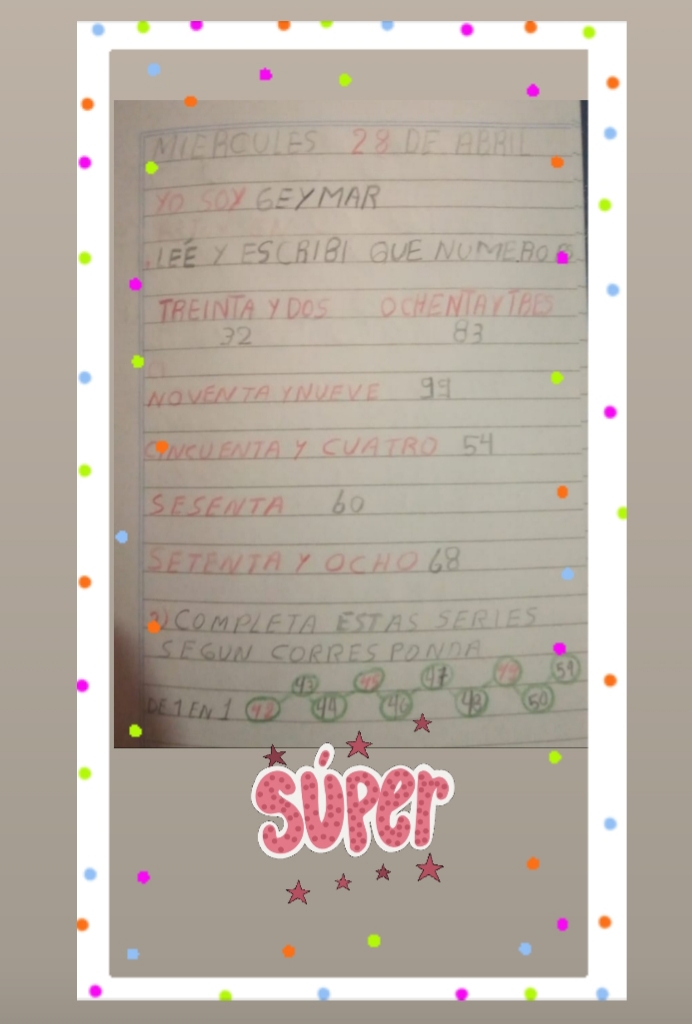 MIERCULES 28 DE ABRIL
YO SOY GEYMAR
LEÉ Y ESCRIBI QUE NUMERO ES
TREINTA Y DOS OCHENTA Y TRES
32 83
NOVENTA YNUEVE 99
CINCUENTA Y CUATRO 54
SESENTA 60
SETENTA Y OCHO 68
2) COMPLETA ESTAS SERIES
SEGUN CORRESPONDA
DE 1 EN 1 42 43 44 45 46 47 48 49 50 51
SÚPER